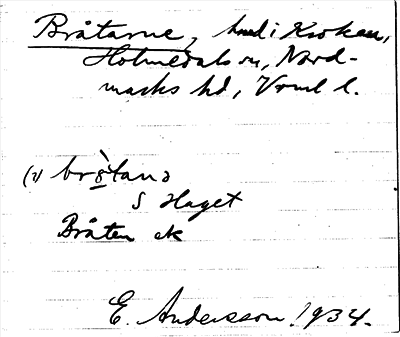 Bråtarne, hmd i Kroken,
Holmedals sn, Nord-
marks hd, Vrml l.
(2) brå̀tanə
S Haget
Bråten ek
E. Andersson 1934.